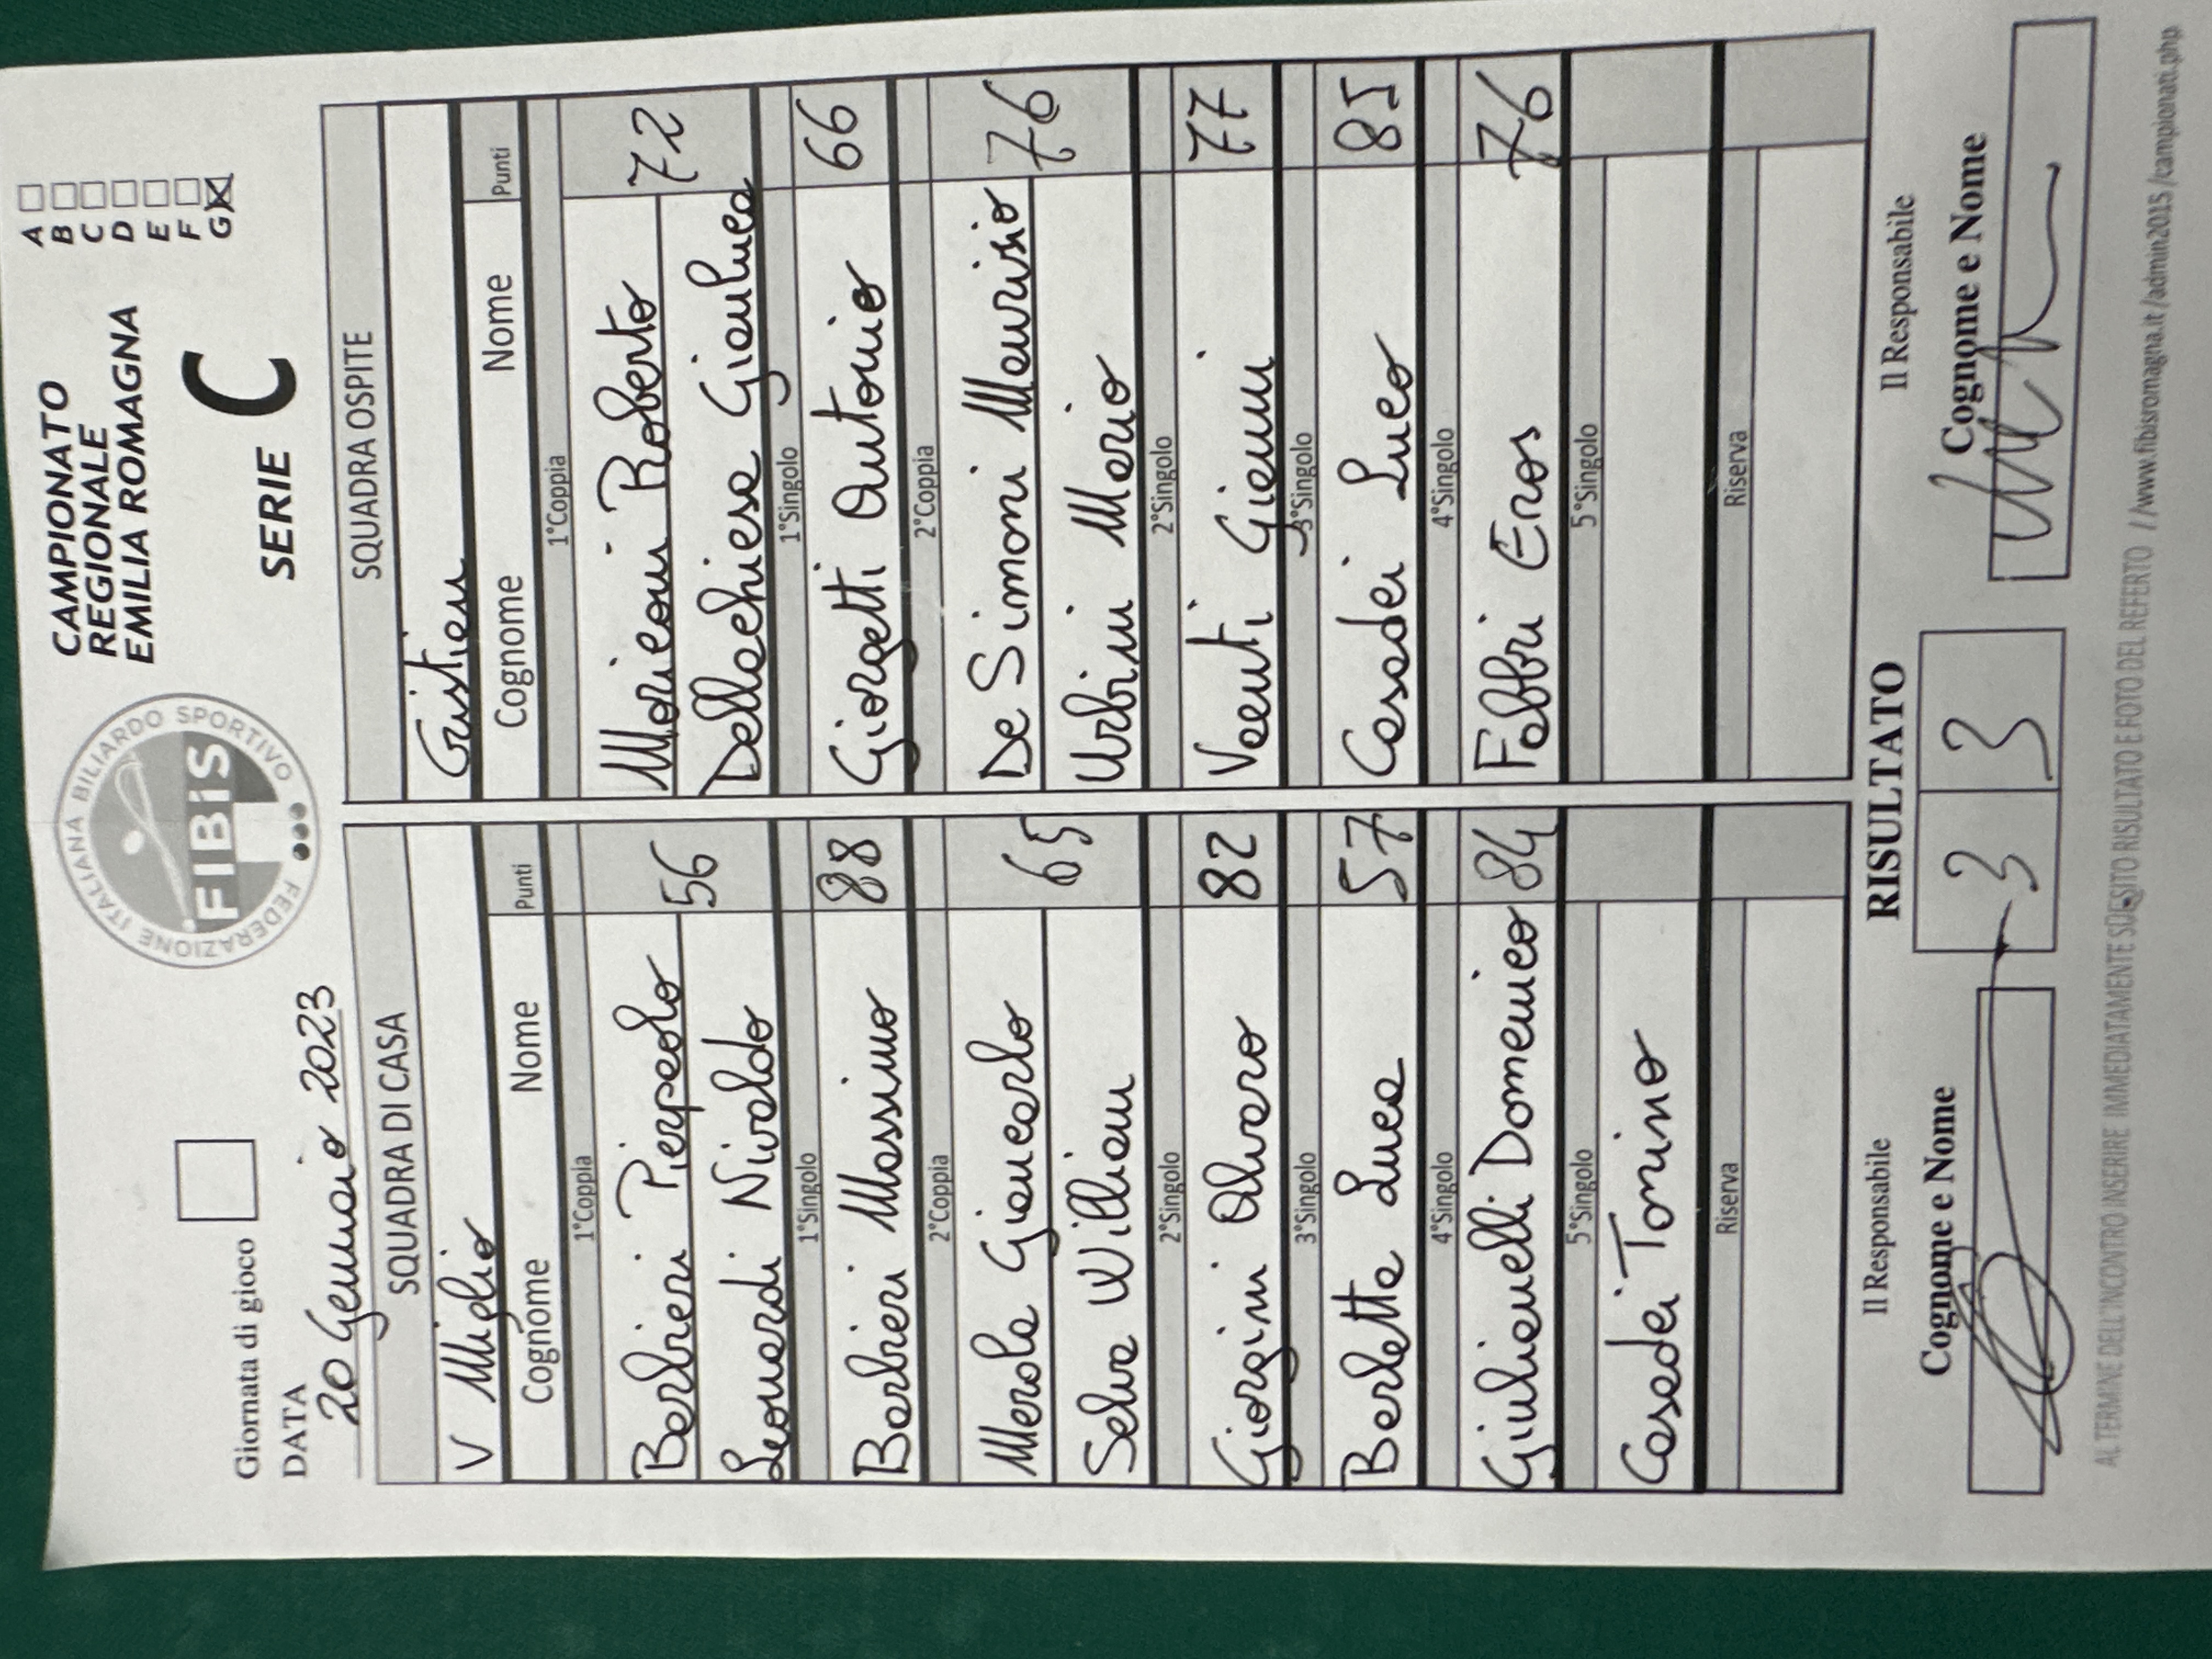 Giornata di gioco
DATA
20 Gennaio 2023
FEDERAZIONE ITALIANA BILIARDO SPORTIVO
FIBiS
CAMPIONATO
REGIONALE
EMILIA ROMAGNA
SERIE C
A
B
C
D
E
F
G
SQUADRA DI CASA
V Miglio
Cognome Nome Punti
1°Coppia
Barbieri Pierpaolo
Leonardi Nivaldo 56
1°Singolo
Barbieri Massimo 88
2°Coppia
Merola Giancarlo
Selva William 65
2°Singolo
Giorgini Alvaro 82
3°Singolo
Barletta Luca 57
4°Singolo
Giulianelli Domenico 84
5°Singolo
Casadei Tonino
Riserva
SQUADRA OSPITE
Cognome Nome Punti
1°Coppia
Mariconi Roberto 72
Dellachiesa Gianluca
1°Singolo
Giorgetti Antonio 66
2°Coppia
De Simoni Maurizio 76
Urbini Mario
2°Singolo
Venti Gianni 77
3°Singolo
Casadei Luca 85
4°Singolo
Fabbri Eros 76
5°Singolo
Riserva
Il Responsabile
Cognome e Nome
RISULTATO
3 3
Il Responsabile
Cognome e Nome
AL TERMINE DELL'INCONTRO INSERIRE IMMEDIATAMENTE SUL SITO RISULTATO E FOTO DEL REFERTO //www.fibisromagna.it/admin2015/campionati.php